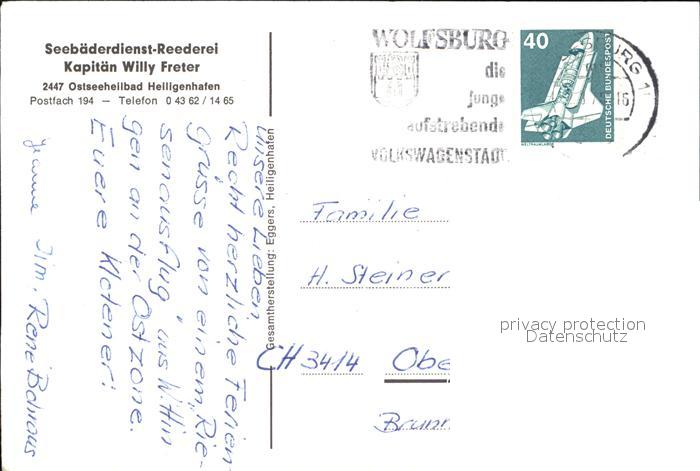 Seebäderdienst-Reederei
Kapitän Willy Freter
2447 Ostseeheilbad Heiligenhafen
Postfach 194 — Telefon 0 43 62 / 14 65
WOLFSBURG
die
junge
aufstrebende
VOLKSWAGENSTADT
40
DEUTSCHE BUNDESPOST
WELTRAUMLABOR
Gesamtherstellung: Eggers, Heiligenhafen
Unsere Lieben,
Recht herzliche Ferien-
grüsse von einem „Rie-
senausflug" ins
gen an der Ostzone.
Euere
Jim, René
Familie
H. Steiner
CH 3414 Obe
Brunn
privacy protection
Datenschutz